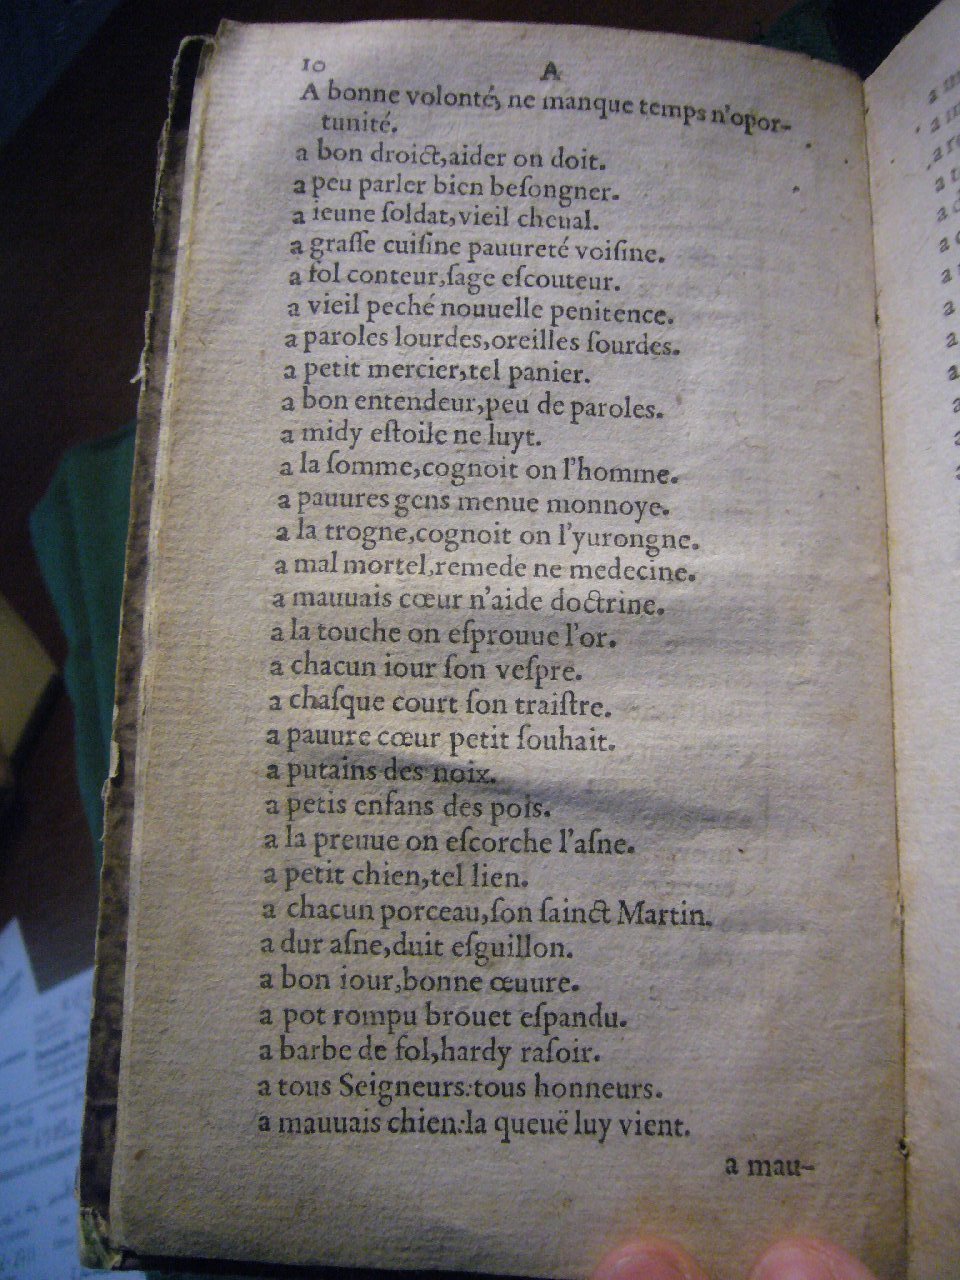 10 A
A bonne volonté, ne manque temps n'opor-
tunité.
a bon droict,aider on doit.
a peu parler bien beſongner.
a ieune ſoldat,vieil cheual.
a graſſe cuiſine pauureté voiſine.
a fol conteur,ſage eſcouteur.
a vieil peché nouuelle penitence.
a paroles lourdes,oreilles ſourdes.
a petit mercier,tel panier.
a bon entendeur,peu de paroles.
a midy eſtoile ne luyt.
a la ſomme,cognoit on l'homme.
a pauures gens menue monnoye.
a la trogne,cognoit on l'yurongne.
a mal mortel,remede ne medecine.
a mauuais cœur n'aide doctrine.
a la touche on eſprouue l'or.
a chacun iour ſon veſpre.
a chaſque court ſon traiſtre.
a pauure cœur petit ſouhait.
a putains des noix.
a petis enfans des pois.
a la preuue on eſcorche l'aſne.
a petit chien,tel lien.
a chacun porceau,ſon ſainct Martin.
a dur aſne,duit eſguillon.
a bon iour,bonne œuure.
a pot rompu brouet eſpandu.
a barbe de fol,hardy raſoir.
a tous Seigneurs:tous honneurs.
a mauuais chien:la queuë luy vient.
a mau-